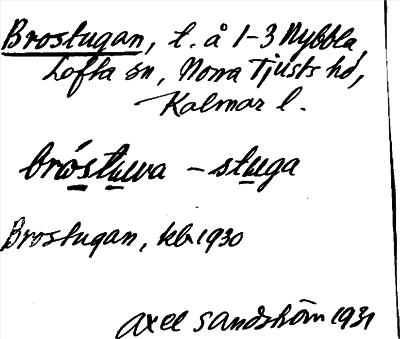 Brostugan, t. å 1-3 Nybbla,
Lofta sn, Norra Tjusts hd,
Kalmar l.
bróstuwa - stuga
Brostugan, kb 1930
Axel Sandström 1931